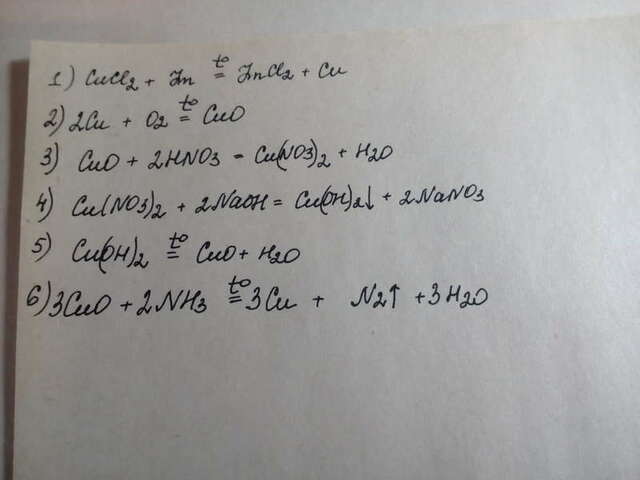 1) CuCl2 + Zn t° = ZnCl2 + Cu
2) 2Cu + O2 t° = CuO
3) CuO + 2HNO3 = Cu(NO3)2 + H2O
4) Cu(NO3)2 + 2NaOH = Cu(OH)2↓ + 2NaNO3
5) Cu(OH)2 t° = CuO + H2O
6) 3CuO + 2NH3 t° = 3Cu + N2↑ + 3H2O